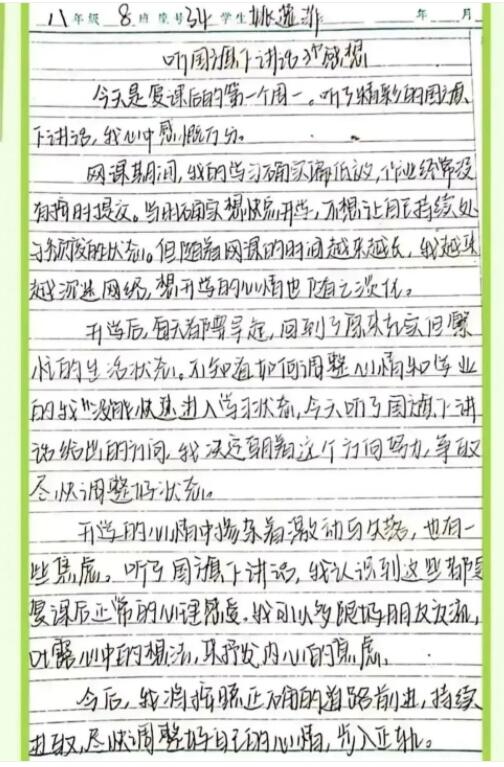 八年级 8 班 座号 34 学生 姚 年 月
听国旗下讲话的感想
今天是复课后的第一个周一。听了精彩的国旗
下讲话，我心中感慨万分。
网课期间，我的学习确实偏低效，作业经常没
有按时提交。当时确实想快点开学，不想让自己持续处
于颓废的状态。但随着网课的时间越来越长，我越来
越沉迷网络，想开学的心情也随之淡化。
开学后，每天都要早起，回到了原来充实但繁
忙的生活状态。不知道如何调整心情和学业
的我"没能快速进入学习状态，今天听了国旗下讲
话给出的方向，我决定朝着这个方向努力，争取
尽快调整好状态。
开学的心情中掺杂着激动与失落，也有一
些焦虑。听了国旗下讲话，我认识到这些都是
复课后正常的心理感受，我可以多跟好朋友交流，
吐露心中的想法，来抒发内心的焦虑。
今后，我将按照正确的道路前进，持续
进取，尽快调整好自己的心情，步入正轨。